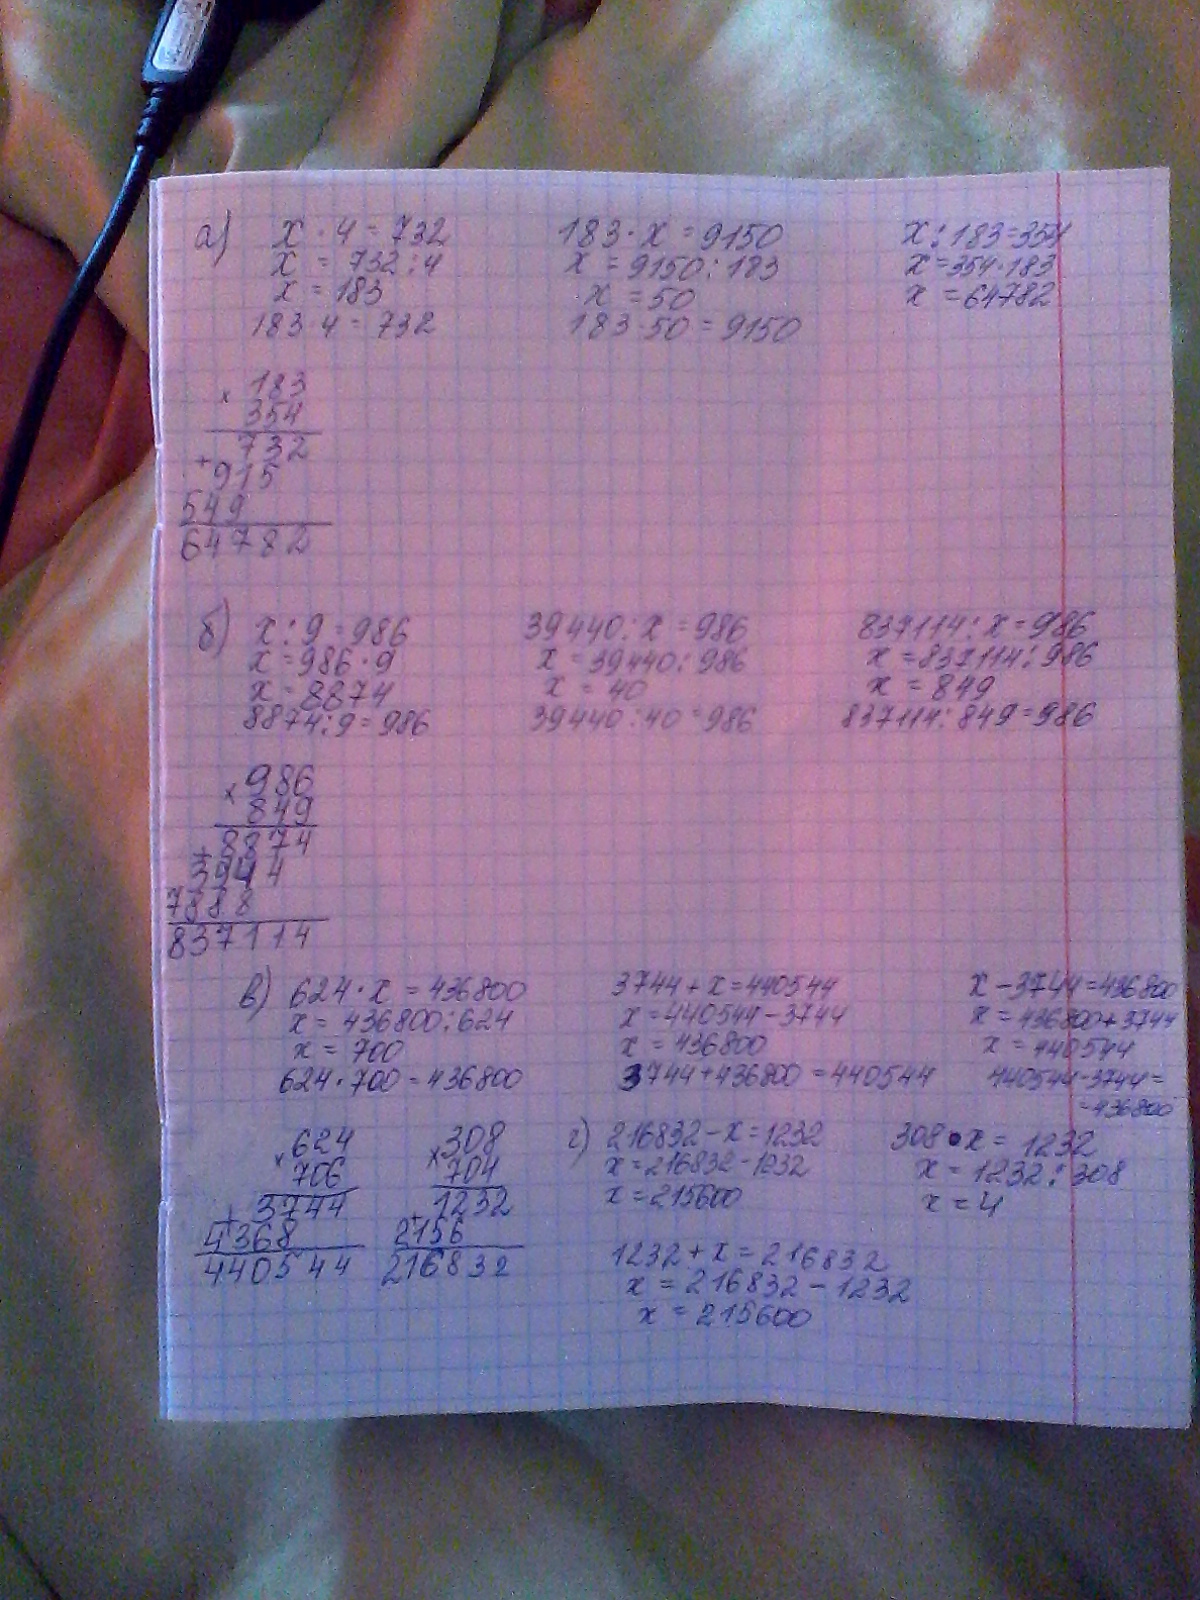 а) x · 4 = 732 183 · x = 9150 x : 183 = 354
x = 732 : 4 x = 9150 : 183 x = 354 · 183
x = 183 x = 50 x = 64782
183 · 4 = 732 183 · 50 = 9150
× 183
354
732
+ 915
549
64782
б) x : 9 = 986 39440 : x = 986 837114 : x = 986
x = 986 · 9 x = 39440 : 986 x = 837114 : 986
x = 8874 x = 40 x = 849
8874 : 9 = 986 39440 : 40 = 986 837114 : 849 = 986
× 986
849
+ 8874
3944
7888
837114
в) 624 · x = 436800 3744 + x = 440544 x - 3744 = 436800
x = 436800 : 624 x = 440544 - 3744 x = 436800 + 3744
x = 700 x = 436800 x = 440544
624 · 700 = 436800 3744 + 436800 = 440544 440544 - 3744 =
= 436800
× 624
706
+ 3744
4368
440544
× 308
704
+ 1232
2156
216832
г) 216832 - x = 1232 308 · x = 1232
x = 216832 - 1232 x = 1232 : 308
x = 215600 x = 4
1232 + x = 216832
x = 216832 - 1232
x = 215600